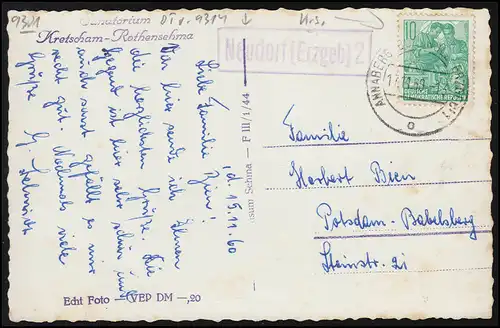 9301
Sanatorium
Kretscham-Rothensehma
Neudorf (Erzgeb) 2
10
DEUTSCHE
DEMOKRATISCHE REPUBLIK
ANNABERG
d. 15.11.60
Liebe Familie Bien!
Von hier sende ich Ihnen
die herzlichsten Grüße. Die
Gegend ist hier sehr schön und
auch sonst gefällt es mir
recht gut. Nochmals viele
Grüße G.
Sehma — F III/1/44
Familie
Herbert Bien
Potsdam-Babelsberg
Steinstr. 21
Echt Foto — VEP DM —,20